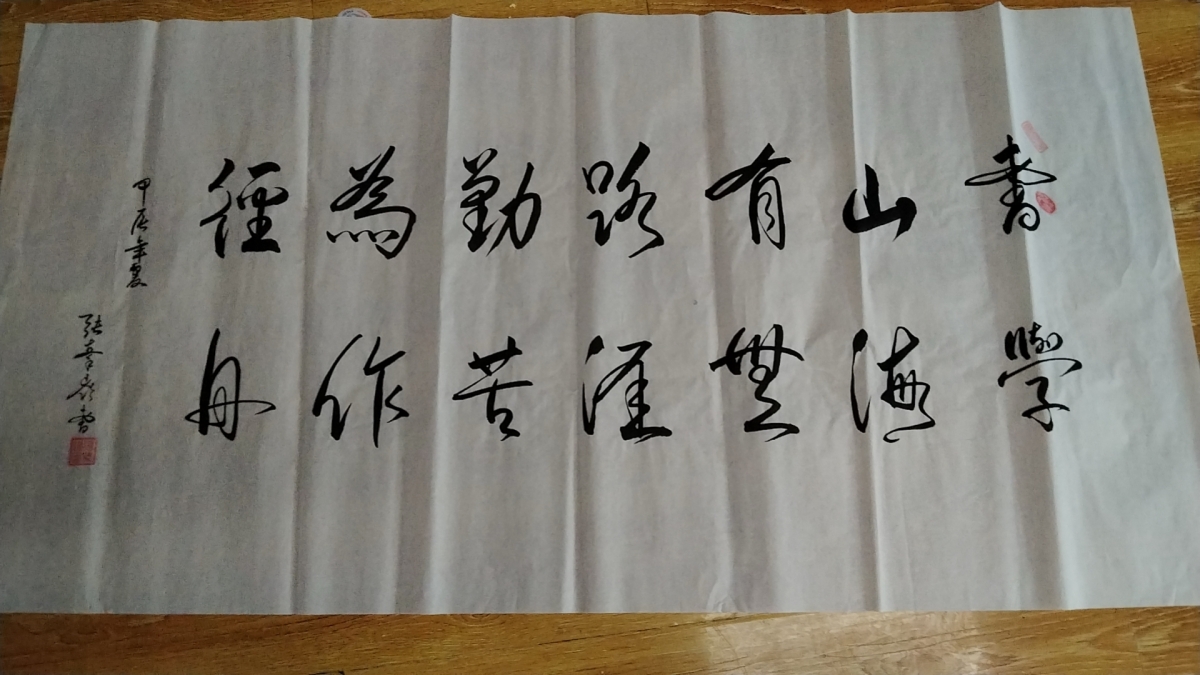 書山有路勤為徑
學海無涯苦作舟
甲辰年夏
張書